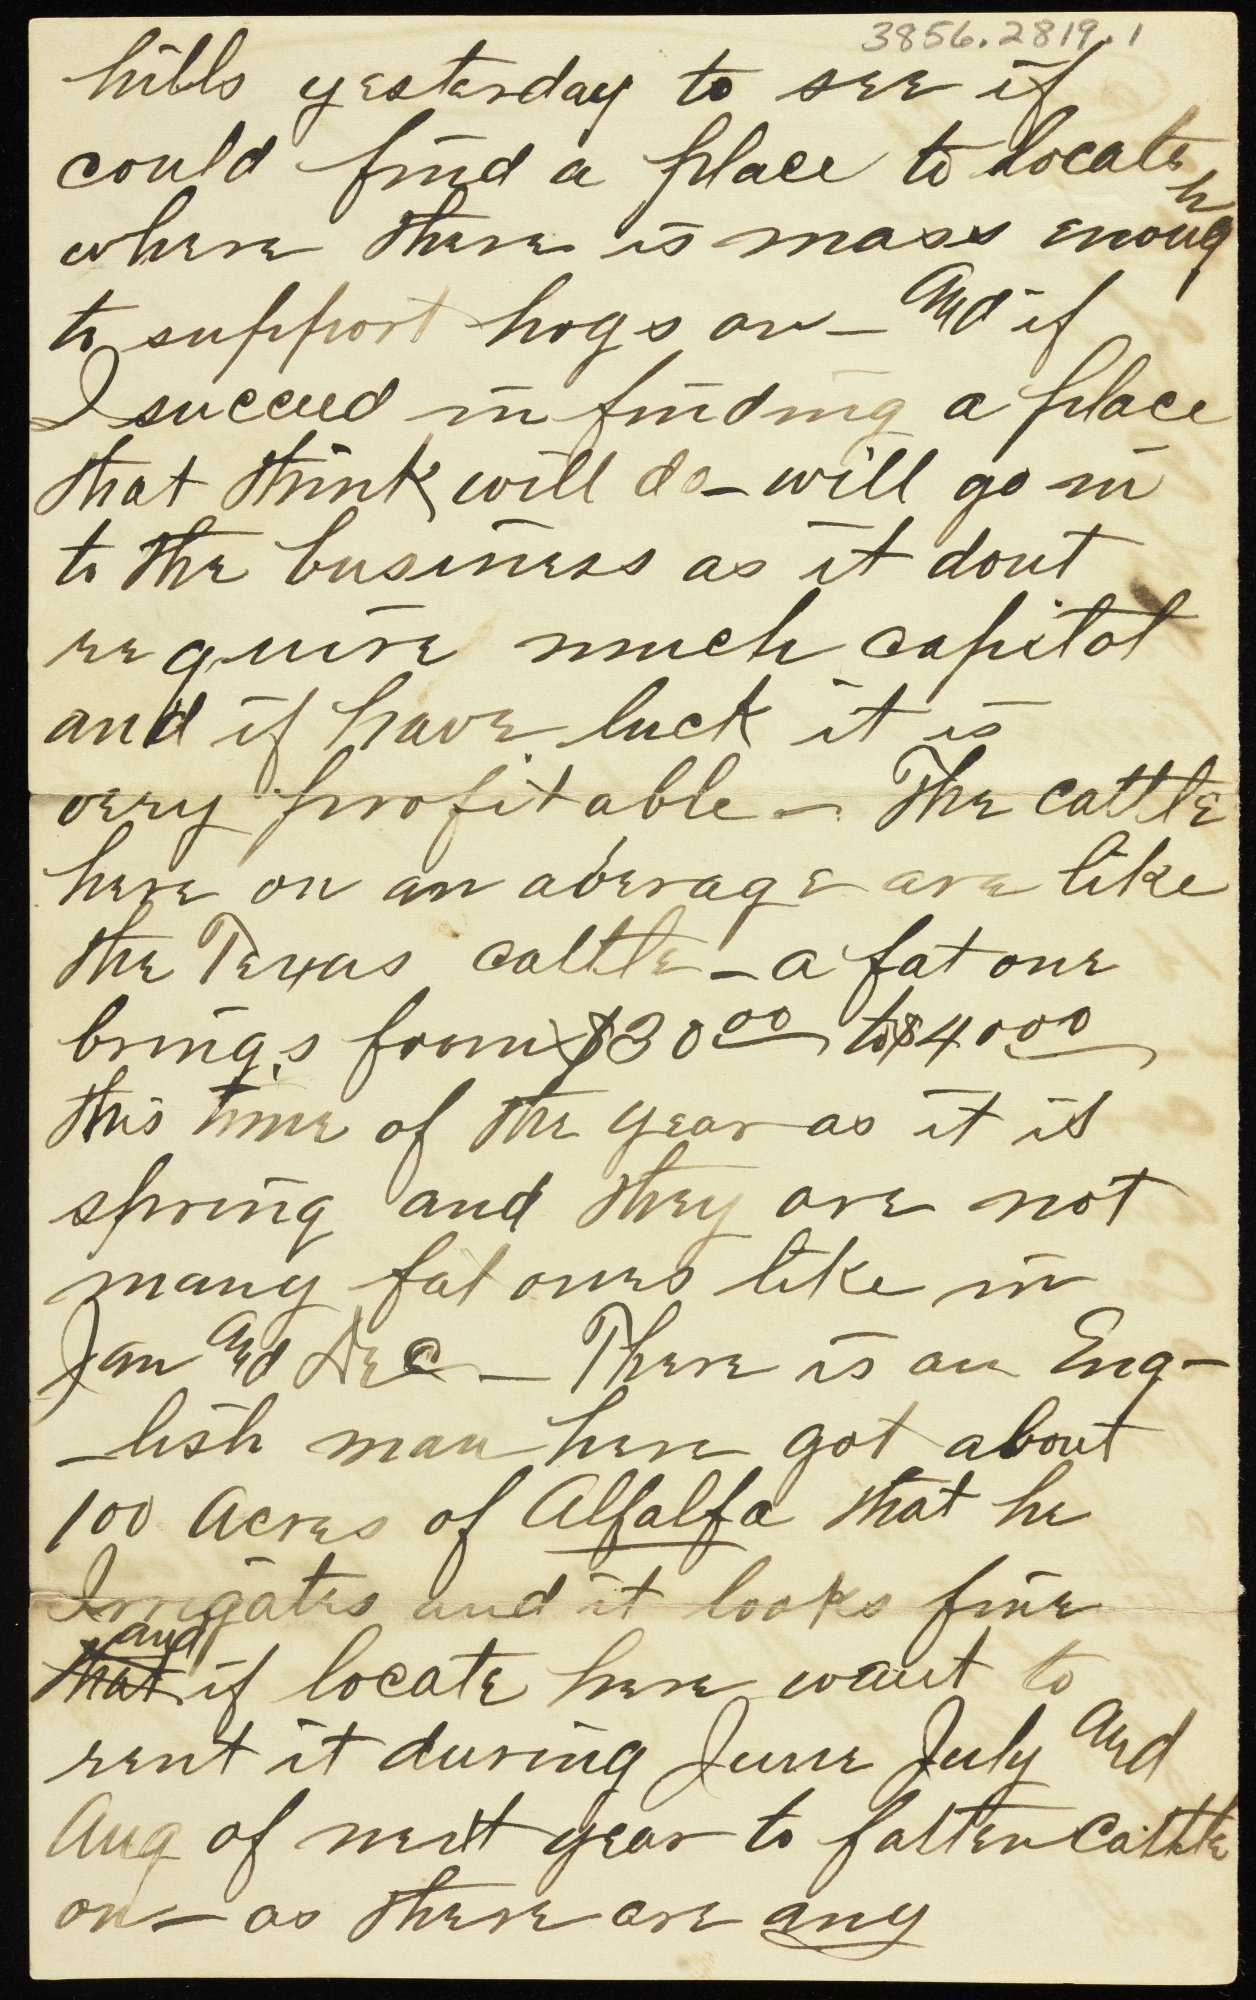 3856.2819.1
hills yesterday to see if
could find a place to locate
where there is mass enough
to support hogs on - and if
I succeed in finding a place
that think will do - will go in
to the business as it dont
require much capitol
and if have luck it is
very profitable - The cattle
here on an average are like
the Texas cattle - a fat one
brings from $30 00 to $40 00
this time of the year as it is
spring and they are not
many fat ones like in
Jan and Dec - There is an Eng-
-lish man here got about
100 Acres of Alfalfa that he
Irrigates and it looks fine
that and if locate here want to
rent it during June July and
Aug of next year to fatten cattle
on - as there are any